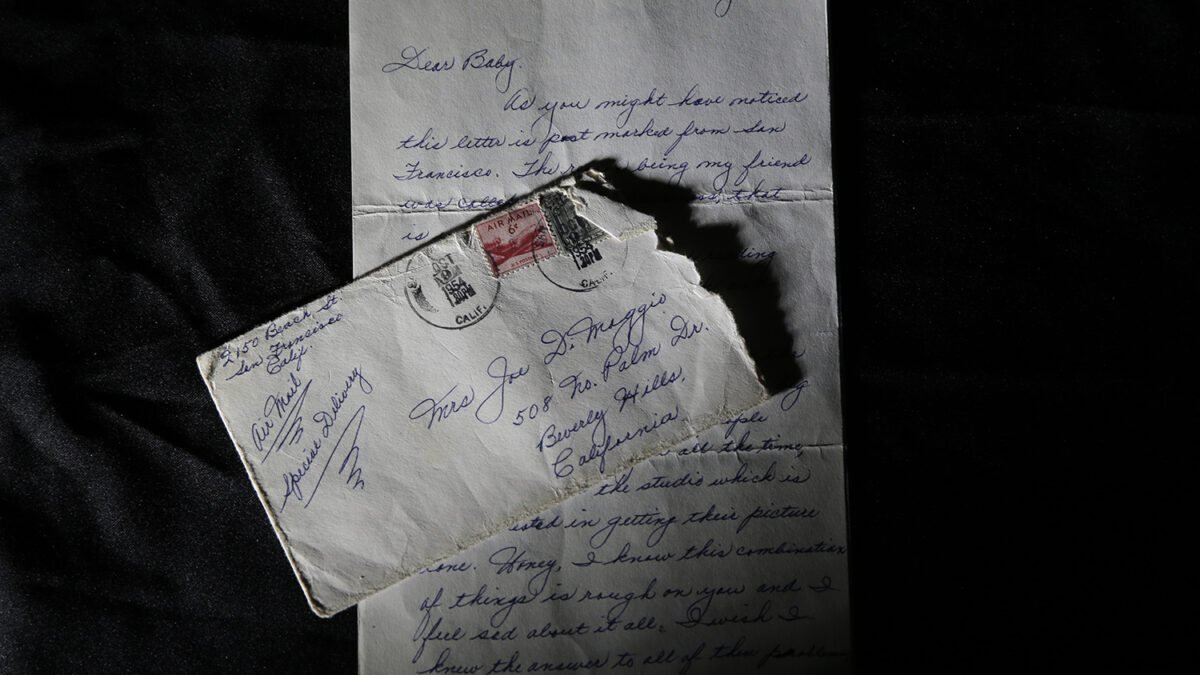 Dear Baby,
As you might have noticed
this letter is post marked from San
Francisco. The being my friend
was called that
is
2150 Beach St.
San Francisco
Calif.
Air Mail
Special Delivery
AIR MAIL
6¢
OCT
1954
CALIF.
1954
CALIF.
Mrs Joe Di Maggio
508 No. Palm Dr.
Beverly Hills,
California.
all the time,
the studio which is
in getting their picture
Honey, I know this combination
of things is rough on you and I
feel sad about it all. I wish I
knew the answer to all of these